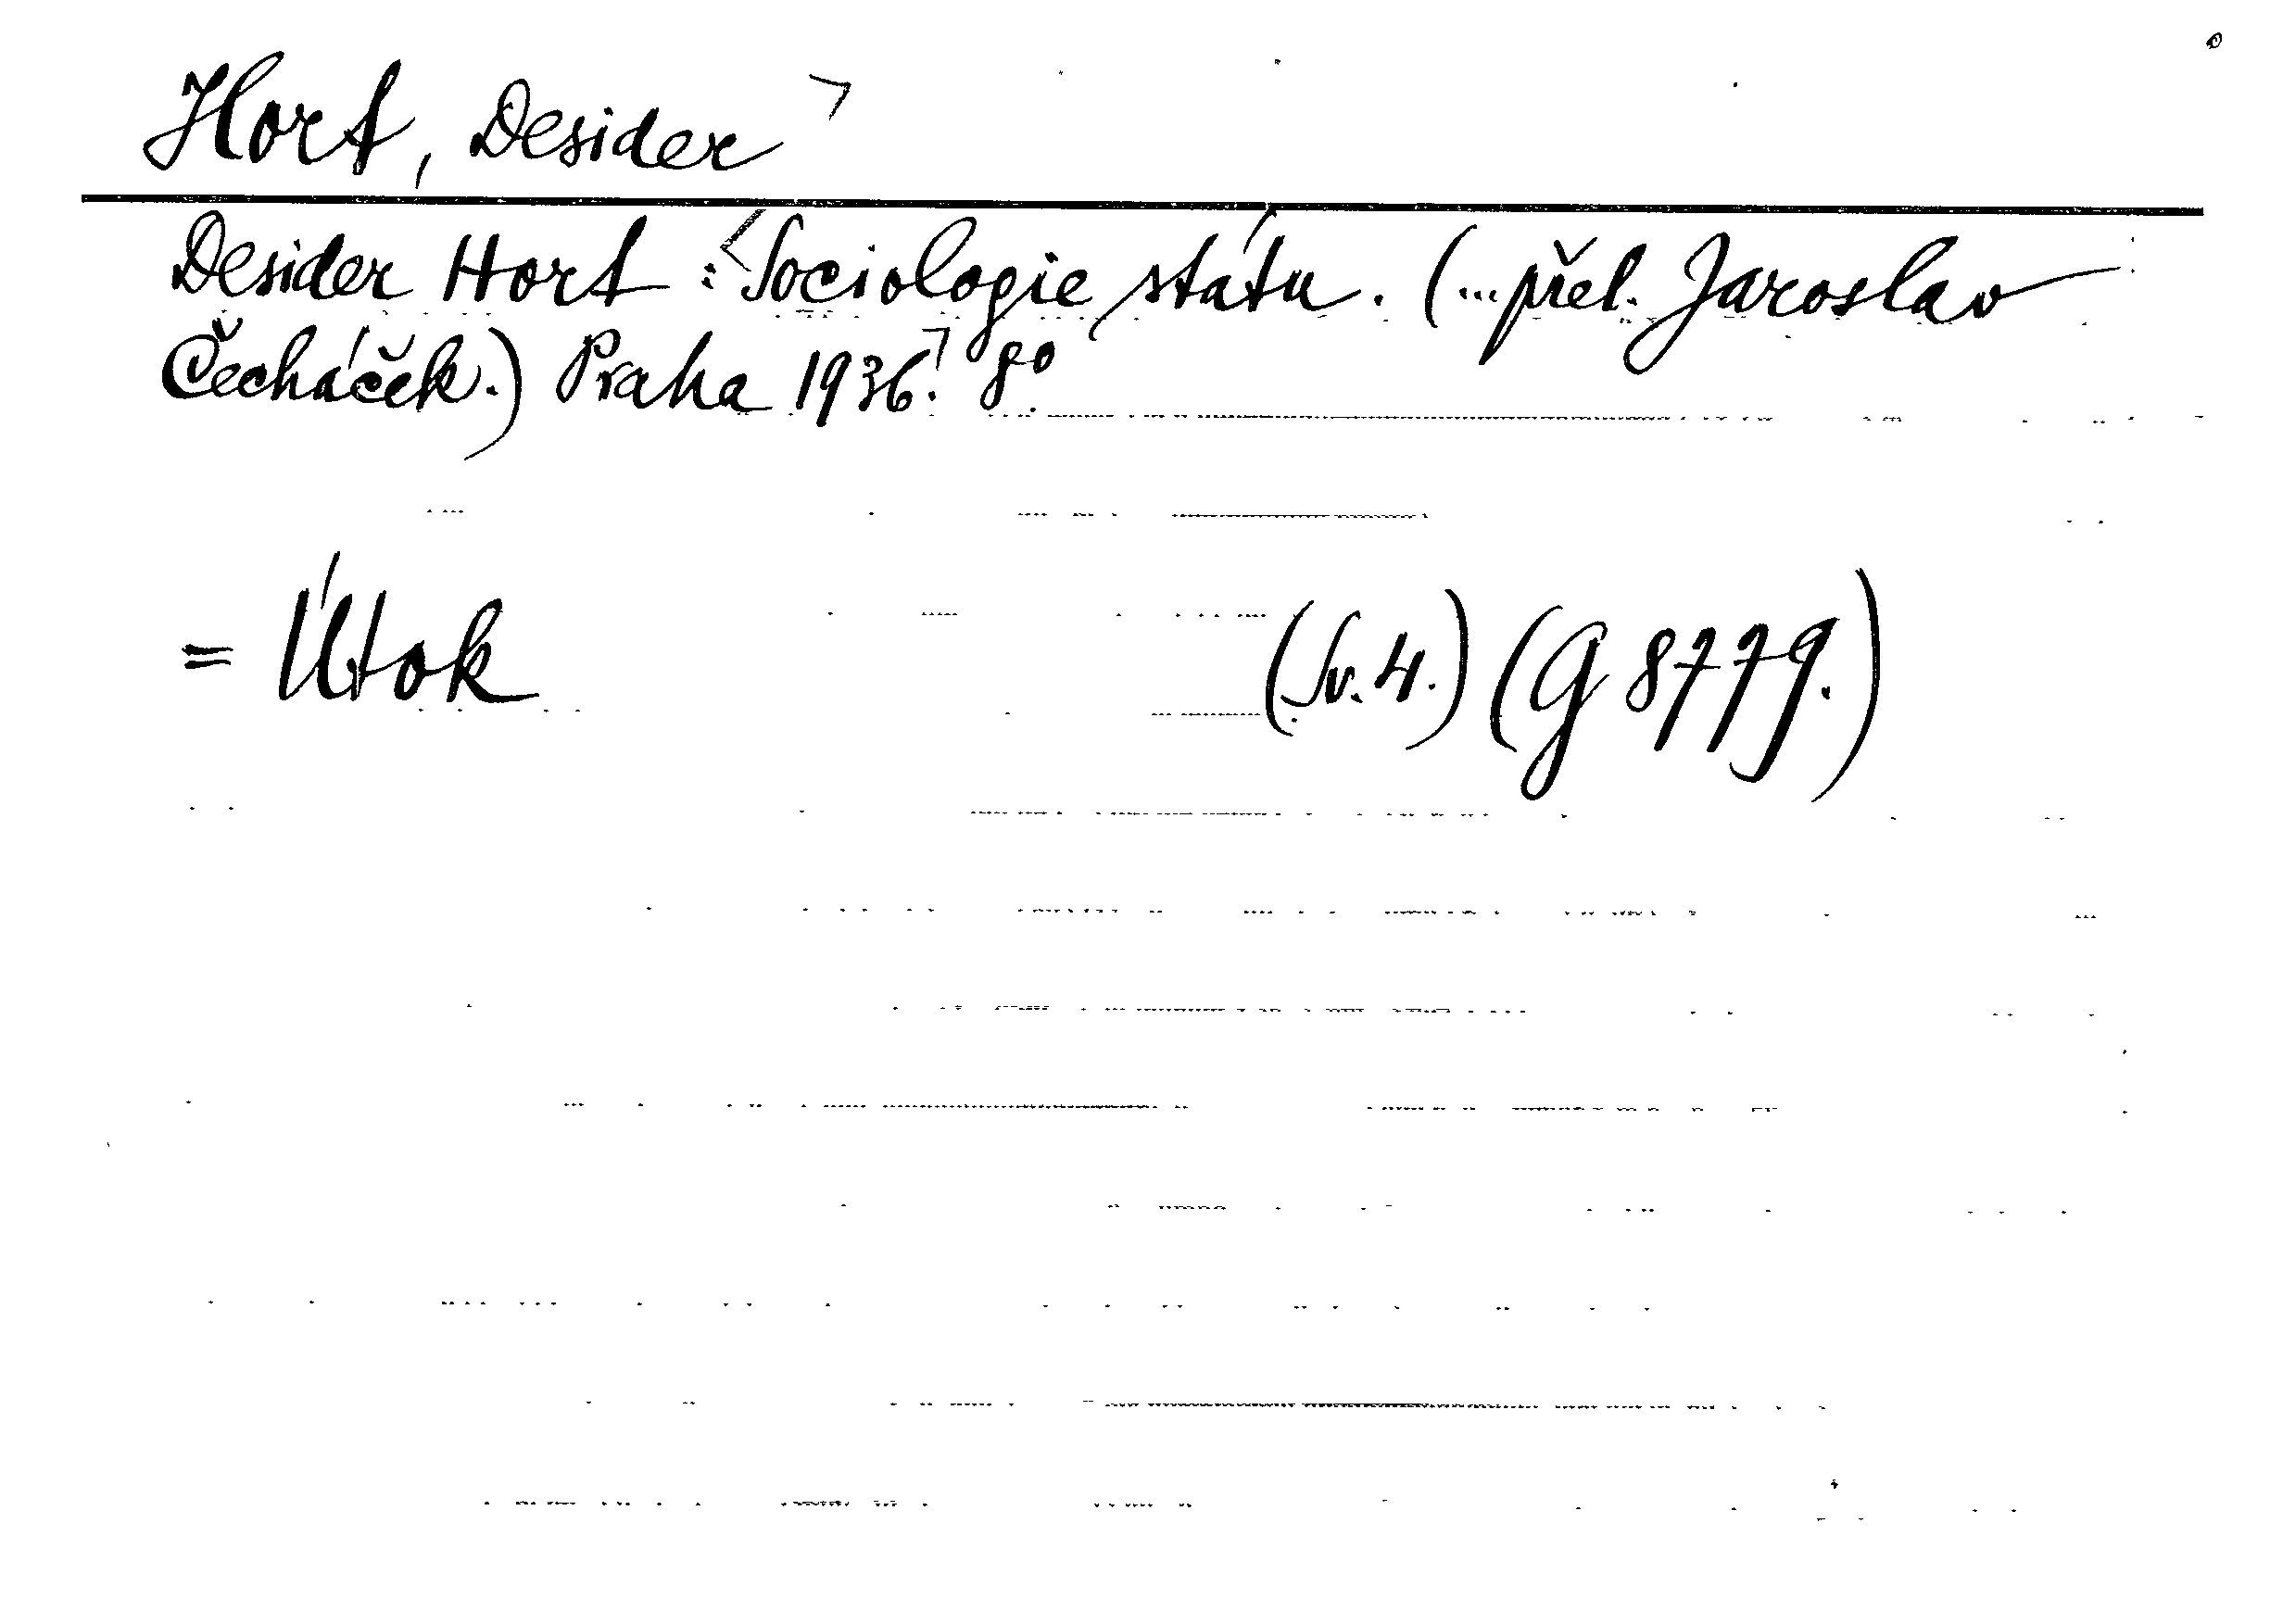 Hort, Desider ¬
Desider Hort : <Sociologie státu. (...přel. Jaroslav
Čecháček.) Praha 1936.¬ 8°
= Útok (Sv. 4.) (G 8779.)